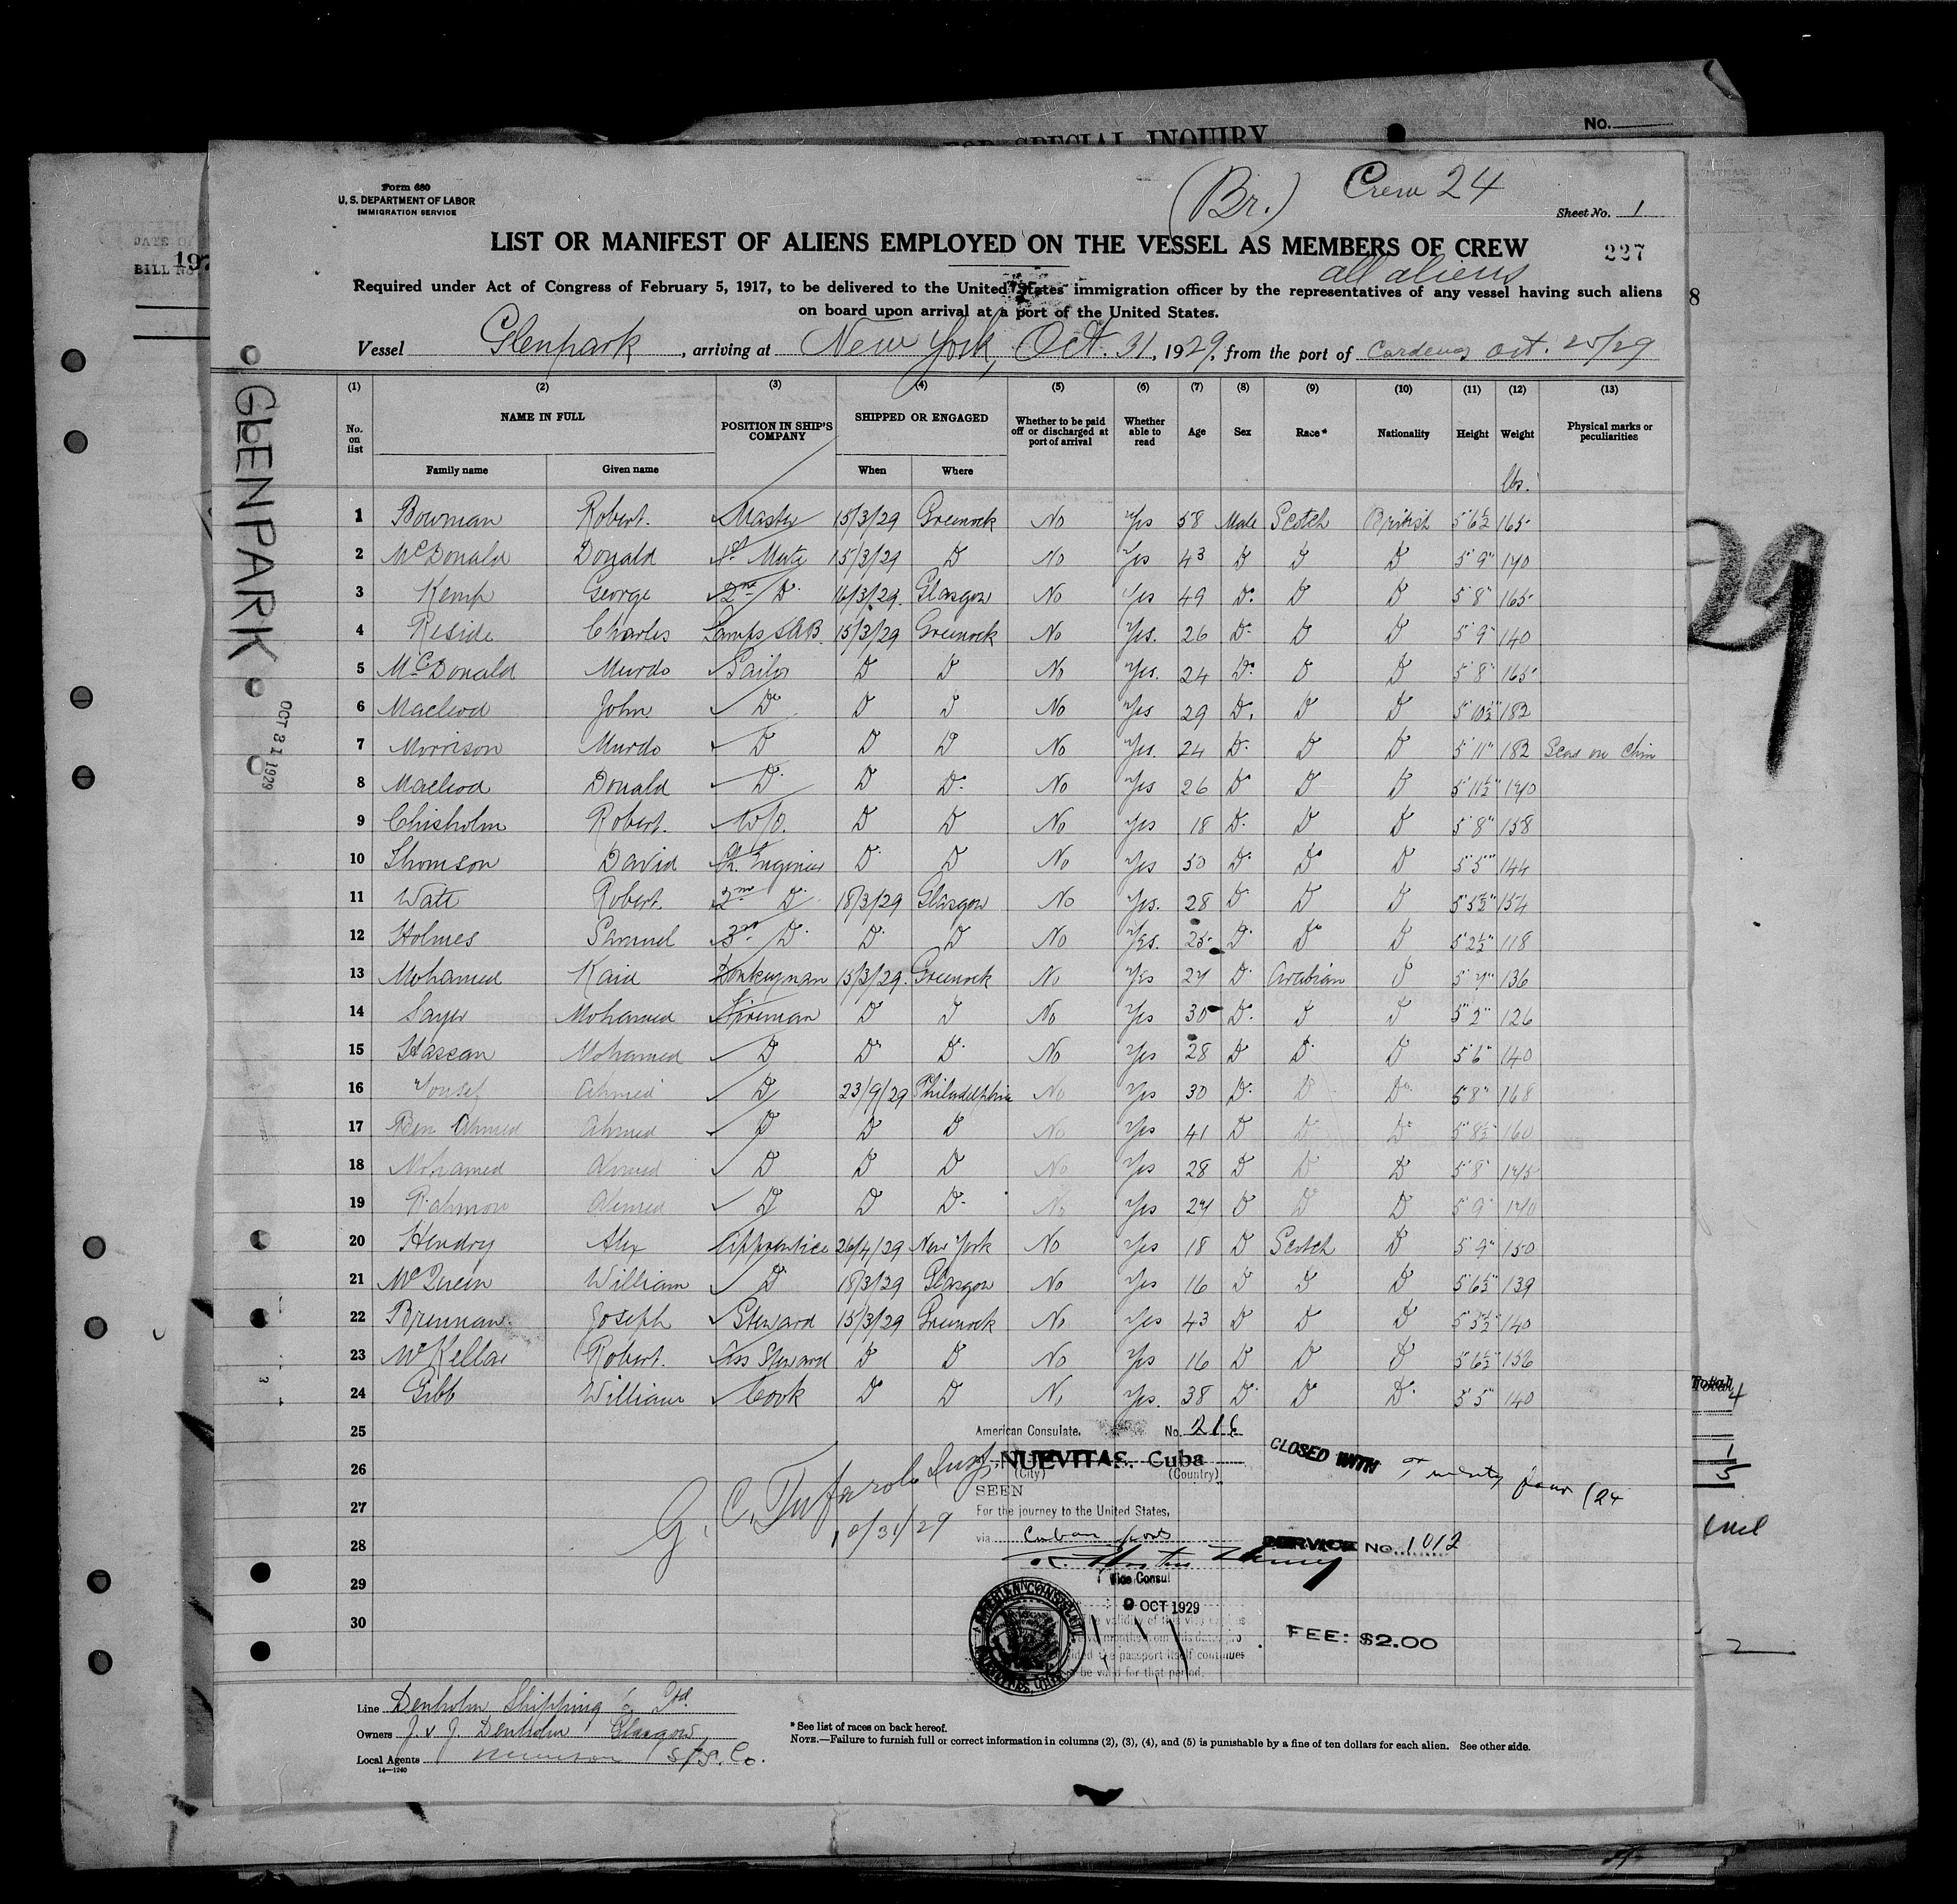 FOR SPECIAL INQUIRY
No.
Form 680
U. S. DEPARTMENT OF LABOR
IMMIGRATION SERVICE
(Br.) Crew 24
Sheet No. 1
LIST OR MANIFEST OF ALIENS EMPLOYED ON THE VESSEL AS MEMBERS OF CREW
227
all aliens
Required under Act of Congress of February 5, 1917, to be delivered to the United States immigration officer by the representatives of any vessel having such aliens
on board upon arrival at a port of the United States.
Vessel Glenpark, arriving at New York, Oct. 31, 1929, from the port of Cardenas Oct. 25/29
(1) (2) (3) (4) (5) (6) (7) (8) (9) (10) (11) (12) (13)
No. on list NAME IN FULL POSITION IN SHIP'S COMPANY SHIPPED OR ENGAGED Whether to be paid off or discharged at port of arrival Whether able to read Age Sex Race* Nationality Height Weight Physical marks or peculiarities
Family name Given name When Where
lbs.
1 Bowman Robert. Master 15/3/29 Greenock No Yes 58 Male Scotch British 5'6½ 165
2 McDonald Donald 1st Mate 15/3/29 D No Yes 43 D D D 5'9" 170
3 Kemp George 2nd D. 16/3/29. Glasgow No Yes 49 D. D D 5'8" 165
4 Reside Charles Lamps & AB. 15/3/29 Greenock No Yes. 26 D. D D 5'9" 140
5 McDonald Murdo Sailor D D No Yes. 24 D. D D 5'8" 165
6 Macleod John D D D No Yes 29 D. D D 5'10½" 182
7 Morrison Murdo D D D No Yes. 24 D. D D 5'11" 182 Scar on Chin
8 Macleod Donald D. D D. No Yes 26 D D D 5'11½" 170
9 Chisholm Robert. W/O. D D No Yes 18 D. D D 5'8" 158
10 Thomson David Ch. Engineer D. D No Yes 50 D. D. D 5'5" 144
11 Watt Robert. 2nd D. 18/3/29 Glasgow No Yes. 28 D D D 5'5½" 154
12 Holmes Samuel 3rd D. D. D No Yes. 25 D. D. D 5'2½" 118
13 Mohamed Kaid Donkeyman 15/3/29. Greenock No Yes 27 D. Arabian D 5'7" 136
14 Sayer Mohamed Fireman D D No Yes 30 D. D D 5'2" 126
15 Hassan Mohamed D D D. No Yes 28 D D D 5'6" 140
16 Yousef Ahmed D 23/9/29 Philadelphia No Yes 30 D. D D. 5'8" 168
17 Ben Ahmed Ahmed D D D No Yes 41 D D D. 5'8½" 160
18 Mohamed Ahmed D D D No Yes 28 D D D 5'8" 175
19 Rahmon Ahmed D D D. No Yes 27 D D D 5'9" 170
20 Hendry Alex Apprentice 26/4/29 New York No Yes 18 D Scotch D 5'9" 150
21 McQueen William D 18/3/29 Glasgow No Yes 16 D D D 5'6½" 139
22 Brennan Joseph Steward 15/3/29 Greenock No Yes 43 D D D 5'3½" 140
23 McKellar Robert. Ass Steward D D No Yes 16 D D D 5'6½" 156
24 Gibb William Cook D D No Yes. 38 D. D D. 5'5" 140
25
26
27
28
29
30
American Consulate. No. 216
NUEVITAS, Cuba
(City) (Country)
SEEN
For the journey to the United States,
via Cuban ports
Vice Consul
9 OCT 1929
10/31/29
CLOSED WITH Twenty four (24
SERVICE NO. 1012
FEE: $2.00
Line Denholm Shipping Co Ltd.
Owners J & J. Denholm Glasgow
Local Agents Munson S/S. Co.
14—1240
* See list of races on back hereof.
NOTE.—Failure to furnish full or correct information in columns (2), (3), (4), and (5) is punishable by a fine of ten dollars for each alien. See other side.
GLENPARK
OCT 31 1929
29
Total